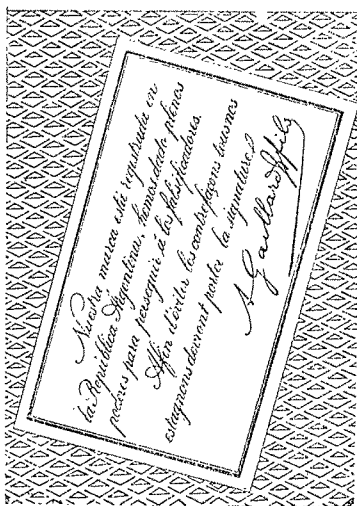 Nuestra marca está registrada en
la República Argentina, hemos dado plenos
poderes para perseguir á los falsificadores.
Afin d'éviter les contrefaçons tous mes
estagnons devront porter la signature
A Gaillard & fils